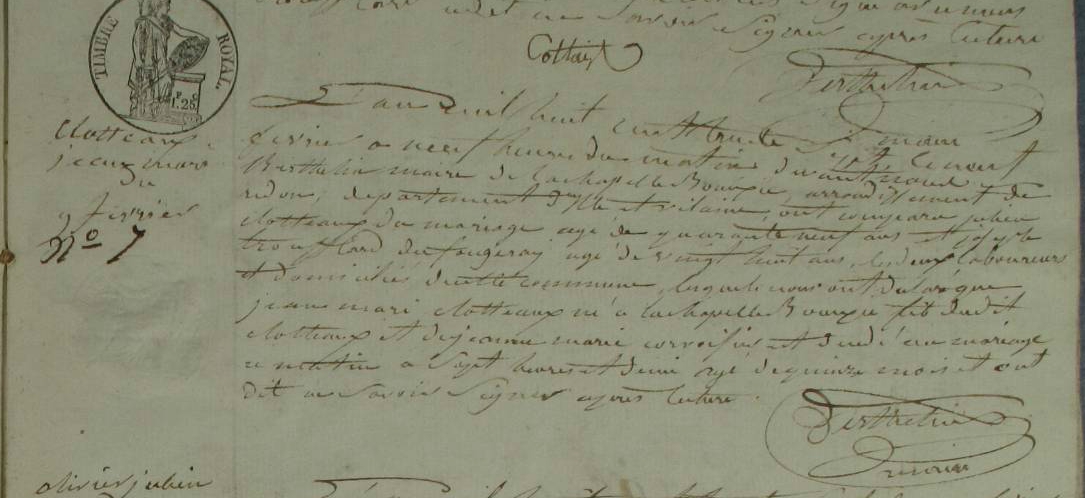 ne savoir signer après lecture
Collas
TIMBRE ROYAL
F. C.
1.25
Berthelin
maire
Clotteaux
jean mari
du
9 fevrier
N° 7
L'an mil huit cent trente le neuf
fevrier a neuf heures du matin devant nous
Berthelin maire de la chapelle Bouexic arrondissement de
redon, departement d'ille et vilaine, ont comparu julien
clotteaux du mariage agé de quarante neuf ans et joseph
troufflard du fougeray agé de vingt huit ans, les deux laboureurs
et domiciliés de cette commune, lesquels nous ont declaré que
jean mari clotteaux né a la chapelle Bouexic fils dudit
clotteaux et de jeanne marie corvoisier est decedé au mariage
ce matin a sept heures et demie agé de quinze mois et ont
dit ne savoir signer après lecture.
Berthelin
maire
olivier julien